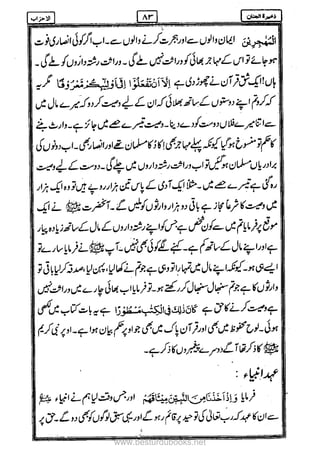 الاحزاب ۸۳ ذخیرۃ الجنان
الْمُهٰجِرِیْنَ ایمان والوں سے اور ہجرت کرنے والوں سے۔ اب اگر کوئی انصاری فوت
ہو جائے تو اس کے مہاجر بھائی کو وراثت نہیں ملے گی۔ وراثت رشتہ داروں کو ملے گی۔
ہاں! ایک شق قرآن نے چھوڑ دی ہے اِلَّاۤ اَنْ تَفْعَلُوْۤا اِلٰۤی اَوْلِیٰٓئِكُمْ مَّعْرُوْفًا مگر یہ
کہ کرو تم اپنے دوستوں کے ساتھ بھلائی کہ ان کے لیے وصیت کر دو کہ میرے مال میں
سے اتنا میرے فلاں دوست کو دے دینا۔ وصیت تیسرے حصے میں جائز ہے۔ وارث بننے
کا حکم تو منسوخ ہو گیا کیونکہ پہلے مہاجر بھی اکا دکا مسلمان تھے اور انصار بھی۔ اب دونوں کی
برادریاں مسلمان ہو گئیں تو اب وراثت رشتہ داروں میں چلے گی۔ دوست کے لیے وصیت
رہ گئی ہے تیسرے حصے میں۔ مثلاً: ایک آدمی کے پاس تین ہزار روپے ہیں تو وہ ایک ہزار
میں وصیت کا شرعاً مجاز ہے باقی دو ہزار وارثوں کو ملیں گے۔ آنحضرت ﷺ نے ایک
موقع پر فرمایا بتاؤ تم میں سے کون شخص ہے جو اپنے رشتہ داروں کے مال کو زیادہ پیار
ہے اور اپنے مال کے ساتھ کم ہے۔ سب کہنے لگے کوئی بھی نہیں۔ آپ ﷺ نے فرمایا تو سارے
ہی ایسے ہو۔ کیونکہ اپنے مال میں تمہارا تو وہی ہے جو تم نے کھا لیا، پہن لیا، صدقہ کر لیا باقی تو
وارثوں کا ہے جو تم سنبھال سنبھال کر رکھتے ہو۔ تو فرمایا اب بھائی چارے میں وراثت نہیں
ہے وصیت کرنے کا حق ہے كَانَ ذٰلِكَ فِی الْكِتٰبِ مَسْطُوْرًا ہے یہ بات کتاب میں لکھی
ہوئی۔ لوح محفوظ میں بھی اور قرآن پاک میں بھی جو اوپر حکم بیان ہوا ہے۔ اوپر نبی کریم
ﷺ کا ذکر تھا آگے دوسرے پیغمبروں کا ذکر ہے۔
عہد انبیاء :
فرمایا وَ اِذْ اَخَذْنَا مِنَ النَّبِیّٖنَ مِیْثَاقَهُمْ اور جس وقت لیا ہم نے انبیاء ﷩
سے ان کا عہد کہ رب تعالیٰ کی توحید پر قائم رہو گے اور یہی سبق لوگوں کو بھی دو گے۔ حق پر
www.besturdubooks.net